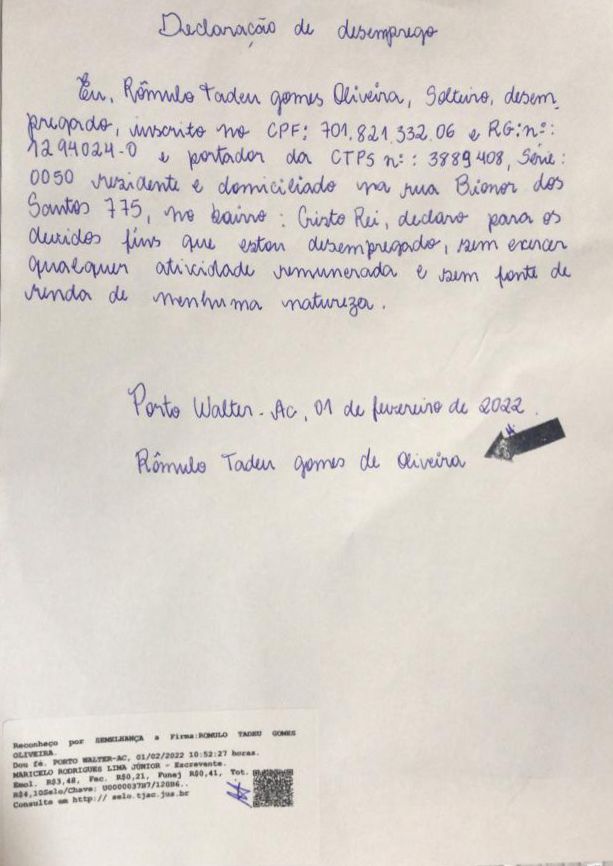 Declaração de desemprego
Eu, Rômulo Tadeu gomes Oliveira, Solteiro, desem
pregado, inscrito no CPF: 701.821.332.06 e RG: nº:
1294024-0 e portador da CTPS nº: 3889408, Série:
0050 residente e domiciliado na rua Bionor dos
Santos 775, no bairro: Cristo Rei, declaro para os
devidos fins que estou desempregado, sem exercer
qualquer atividade remunerada e sem fonte de
renda de nenhuma natureza.
Porto Walter-Ac, 01 de fevereiro de 2022.
Rômulo Tadeu gomes de Oliveira
Reconheço por SEMELHANÇA a Firma:ROMULO TADEU GOMES
OLIVEIRA.
Dou fé. PORTO WALTER-AC, 01/02/2022 10:52:27 horas.
MARICELO RODRIGUES LIMA JÚNIOR - Escrevente.
Emol. R$3,48, Fec. R$0,21, Funej R$0,41, Tot.
R$4,10Selo/Chave:
Consulte em http:// selo.tjac.jus.br